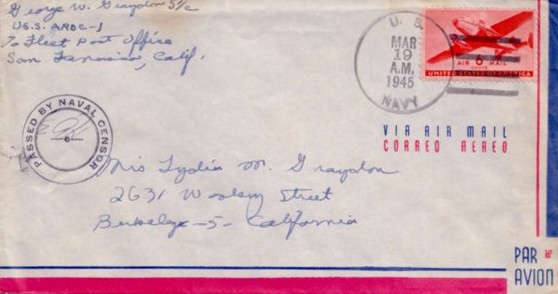 George W. Graydon S 1/c
U.S.S. ARDC-1
% Fleet Post Office
San Francisco, Calif.
U. S.
MAR
19
A.M.
1945
NAVY
AIR 6 MAIL
CENTS
UNITED STATES OF AMERICA
VIA AIR MAIL
CORREO AEREO
PASSED BY NAVAL CENSOR
Mrs Lydia M. Graydon
2631 Street
Berkeley-5-California
PAR
AVION